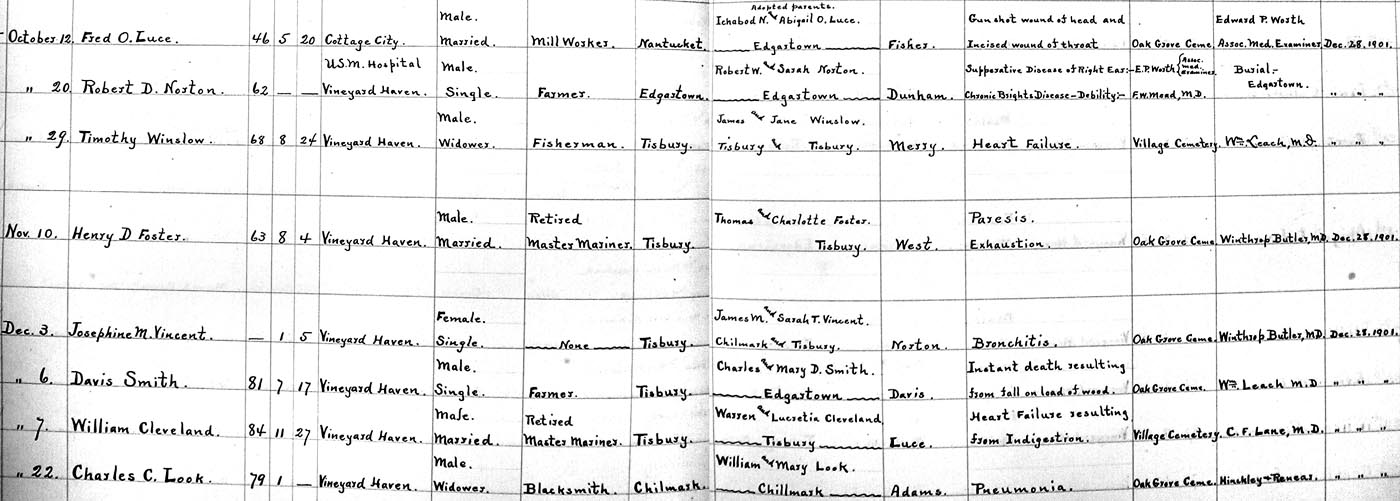 Male. Adopted parents.
Ichabod N. and Abigail O. Luce. Gun shot wound of head and Edward P. Worth
October 12. Fred O. Luce. 46 5 20 Cottage City. Married. Mill Worker. Nantucket. Edgartown Fisher. Incised wound of throat Oak Grove Ceme. Assoc. Med. Examiner. Dec. 28. 1901.
U.S.M. Hospital Male. Robert W. and Sarah Norton. Supperative Disease of Right Ear:- E.P. Worth {Assoc. med. examiner. Burial:-
" 20. Robert D. Norton. 62 — — Vineyard Haven. Single. Farmer. Edgartown. Edgartown Dunham. Chronic Brights Disease - Debility:- F.W. Mead, M.D. Edgartown. " " "
Male. James and Jane Winslow.
" 29. Timothy Winslow. 68 8 24 Vineyard Haven. Widower. Fisherman. Tisbury. Tisbury & Tisbury. Merry. Heart Failure. Village Cemetery. Wm. Leach, M.D. " " "
Male. Retired Thomas and Charlotte Foster. Paresis.
Nov. 10. Henry D Foster. 63 8 4 Vineyard Haven. Married. Master Mariner. Tisbury. Tisbury. West. Exhaustion. Oak Grove Ceme. Winthrop Butler, M.D. Dec. 28. 1901.
Female. James M. and Sarah T. Vincent.
Dec. 3. Josephine M. Vincent. — 1 5 Vineyard Haven. Single. None Tisbury. Chilmark and Tisbury. Norton. Bronchitis. Oak Grove Ceme. Winthrop Butler, M.D. Dec. 28. 1901.
Male. Charles and Mary D. Smith. Instant death resulting
" 6. Davis Smith. 81 7 17 Vineyard Haven. Single. Farmer. Tisbury. Edgartown Davis. from fall on load of wood. Oak Grove Ceme. Wm. Leach M.D " " "
Male. Retired Warren and Lucretia Cleveland Heart Failure resulting
" 7. William Cleveland. 84 11 27 Vineyard Haven. Married. Master Mariner. Tisbury. Tisbury Luce. from Indigestion. Village Cemetery. C. F. Lane, M.D. " " "
Male. William and Mary Look.
" 22. Charles C. Look. 79 1 — Vineyard Haven. Widower. Blacksmith. Chilmark. Chillmark Adams. Pneumonia. Oak Grove Ceme. Hinckley & Renear. " " "